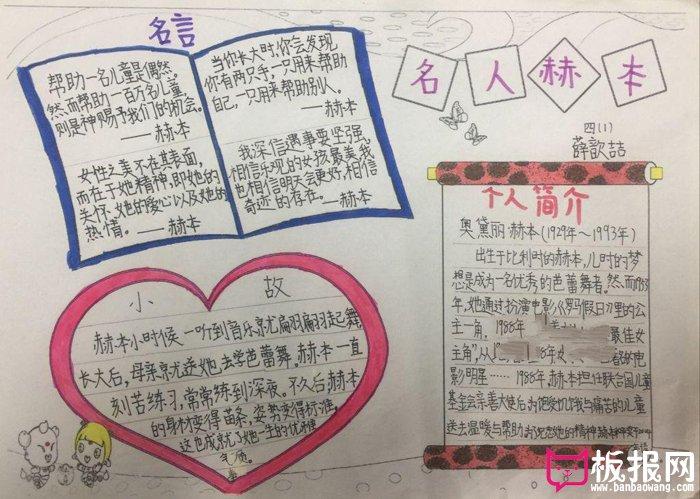 名言
帮助一名儿童是偶然,
然而帮助一百万名儿童,
则是神赐予我们的机会。
——赫本
女性之美不在其表面,
而在于她精神,即她的
关怀、她的爱心以及她的
热情。——赫本
当你长大时,你会发现
你有两只手,一只用来帮助
自己,一只用来帮助别人。
——赫本
我深信遇事要坚强,
相信乐观的女孩最美,我
也相信明天会更好,相信
奇迹的存在。——赫本
名人赫本
四(1)
薛歆喆
个人简介
奥黛丽·赫本(1929年~1993年)
出生于比利时的赫本,儿时的梦
想是成为一名优秀的芭蕾舞者。然而1953
年,她通过扮演电影《罗马假日》里的公
主一角,1988年
最佳女
主角”从
8年
的电
影明星……1988年,赫本担任联合国儿童
基金会亲善大使后,为饱受饥饿与痛苦的儿童
送去温暖与帮助
小故
赫本小时候,一听到音乐就翩翩起舞,
长大后,母亲就送她去学芭蕾舞。赫本一直
刻苦练习,常常练到深夜。不久后,赫本
的身材变得苗条,姿势变得标准,
这也成就了她一生的优雅
气质。
板报网
www.banbaowang.com